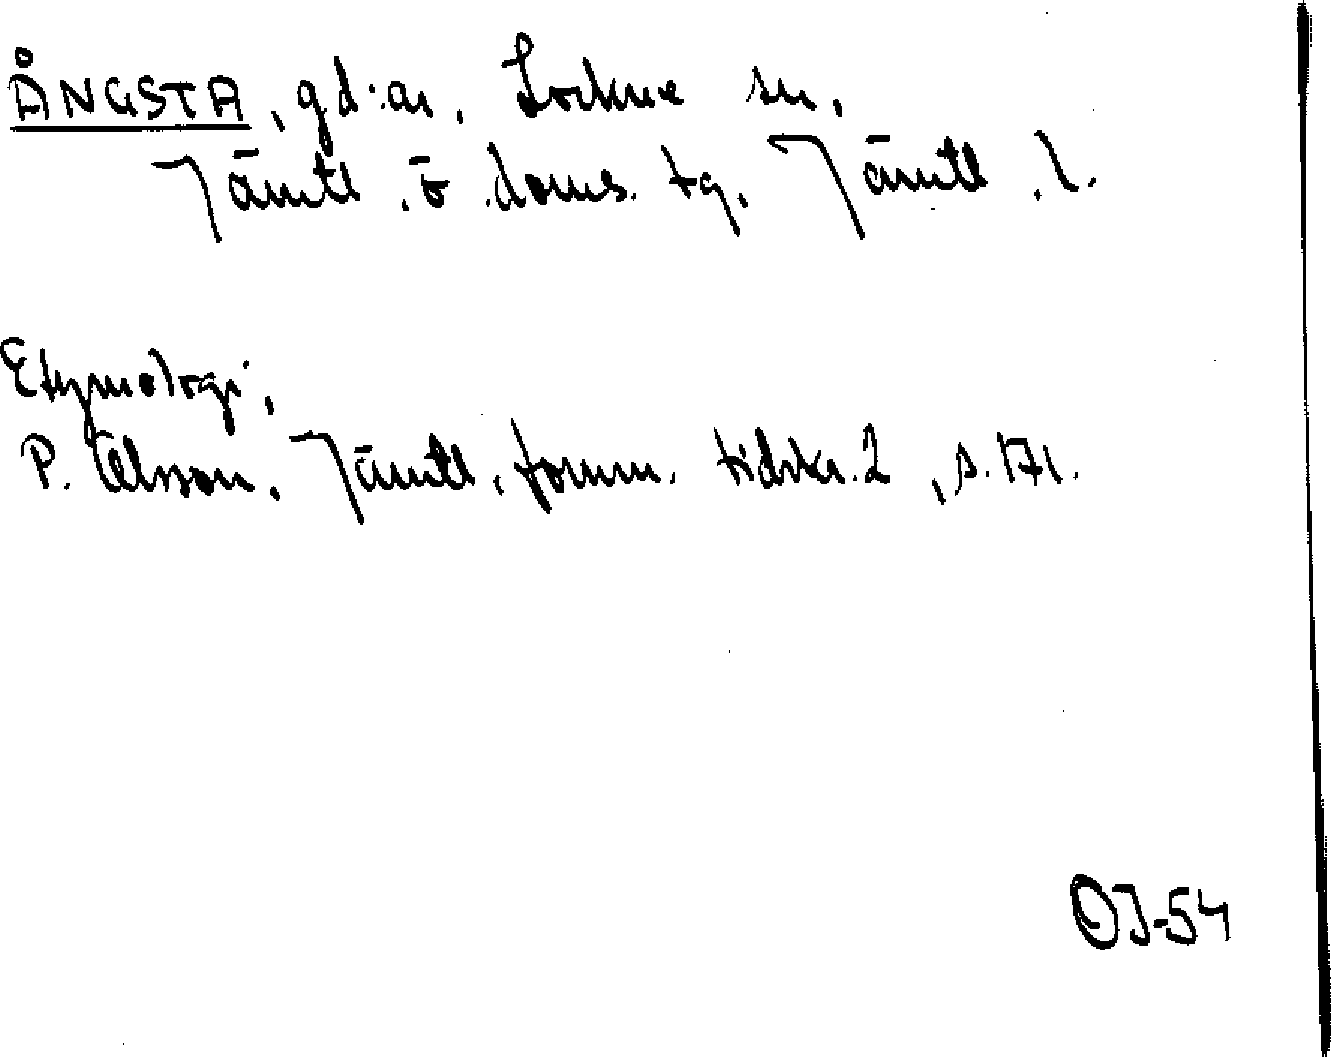 ÅNGSTA, gd:ar, Lockne sn,
Jämtl. ö. doms. tg. Jämtl. l.
Etymologi,
P. Olsson, Jämtl. fornm. tidskr. 2, s. 171.
OJ-54